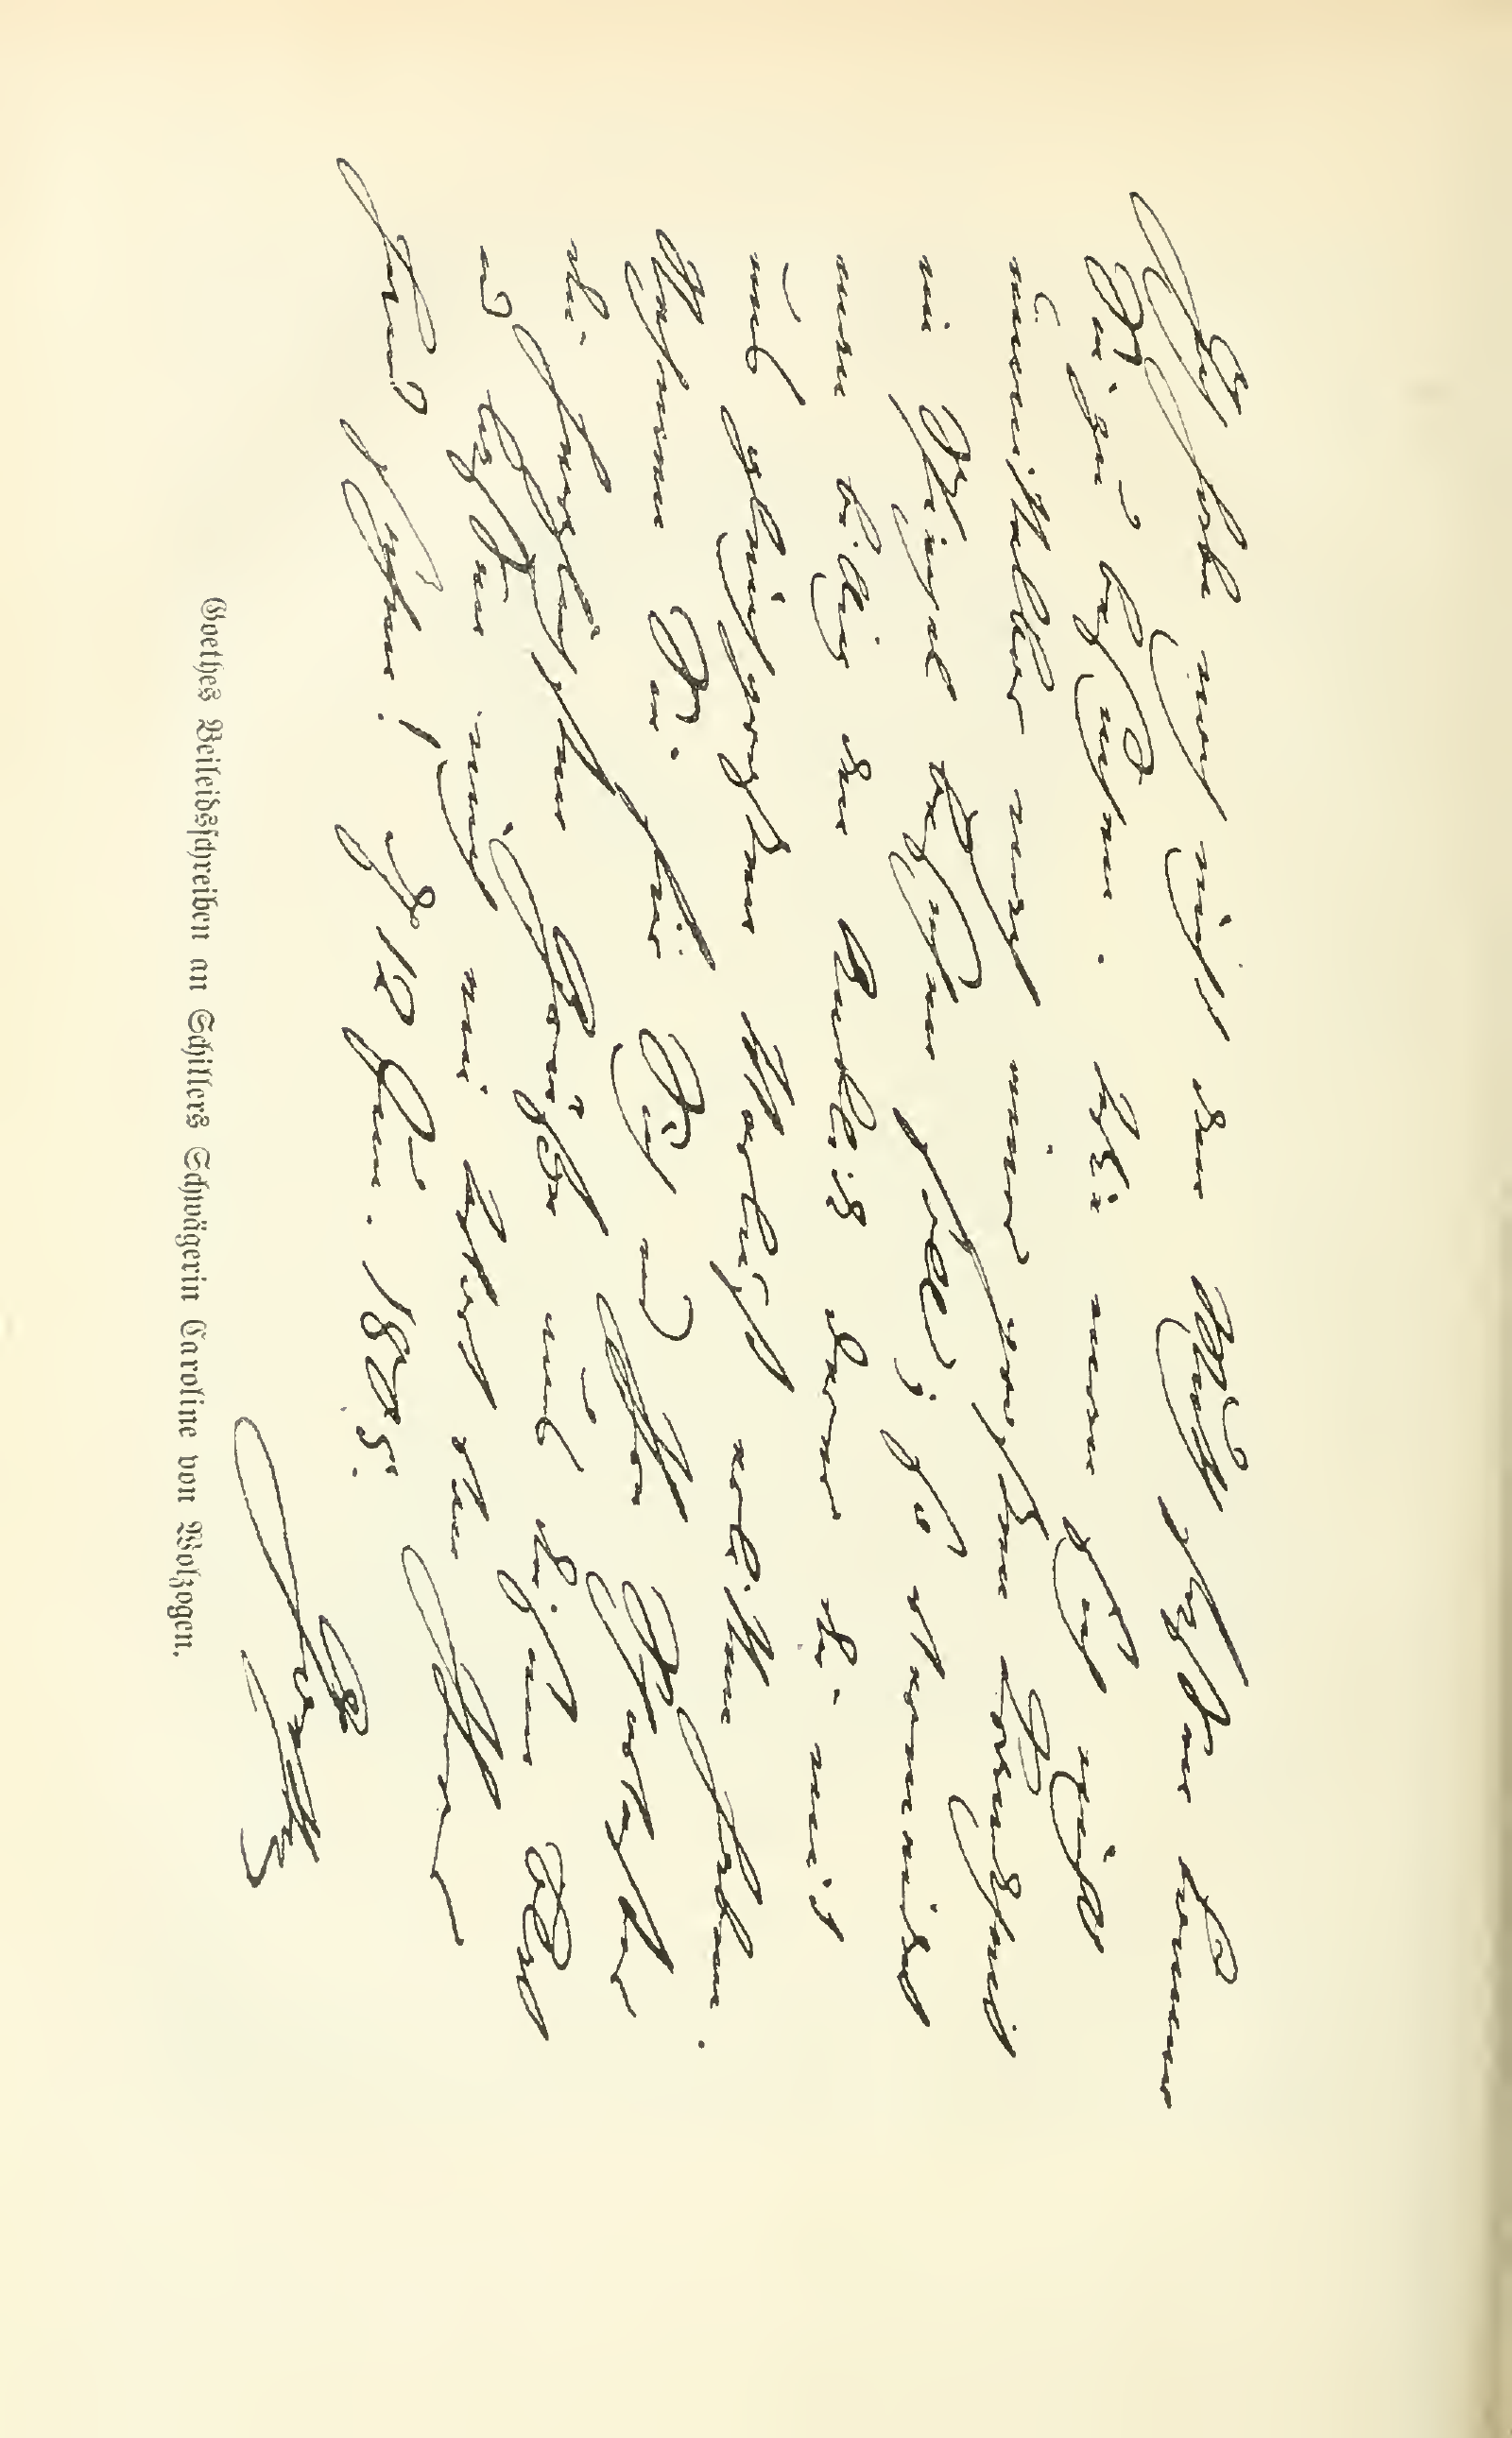 Ich habe noch nicht den Muth fassen können
Sie zu besuchen. wie man sich nicht
unmittelbar nach einer großen Kranckheit
im Spiegel besehen soll; so vermeidet
man billig den Anblick derer die mit
uns gleich großen Verlust erlitten haben.
Nehmen Sie für Sich und Ihre Schwester
die herzlichsten Grüße
und lassen mich
Hand sehen! W. 12 Jun. 1805.
Goethe
Goethes Beileidsschreiben an Schillers Schwägerin Caroline von Wolzogen.